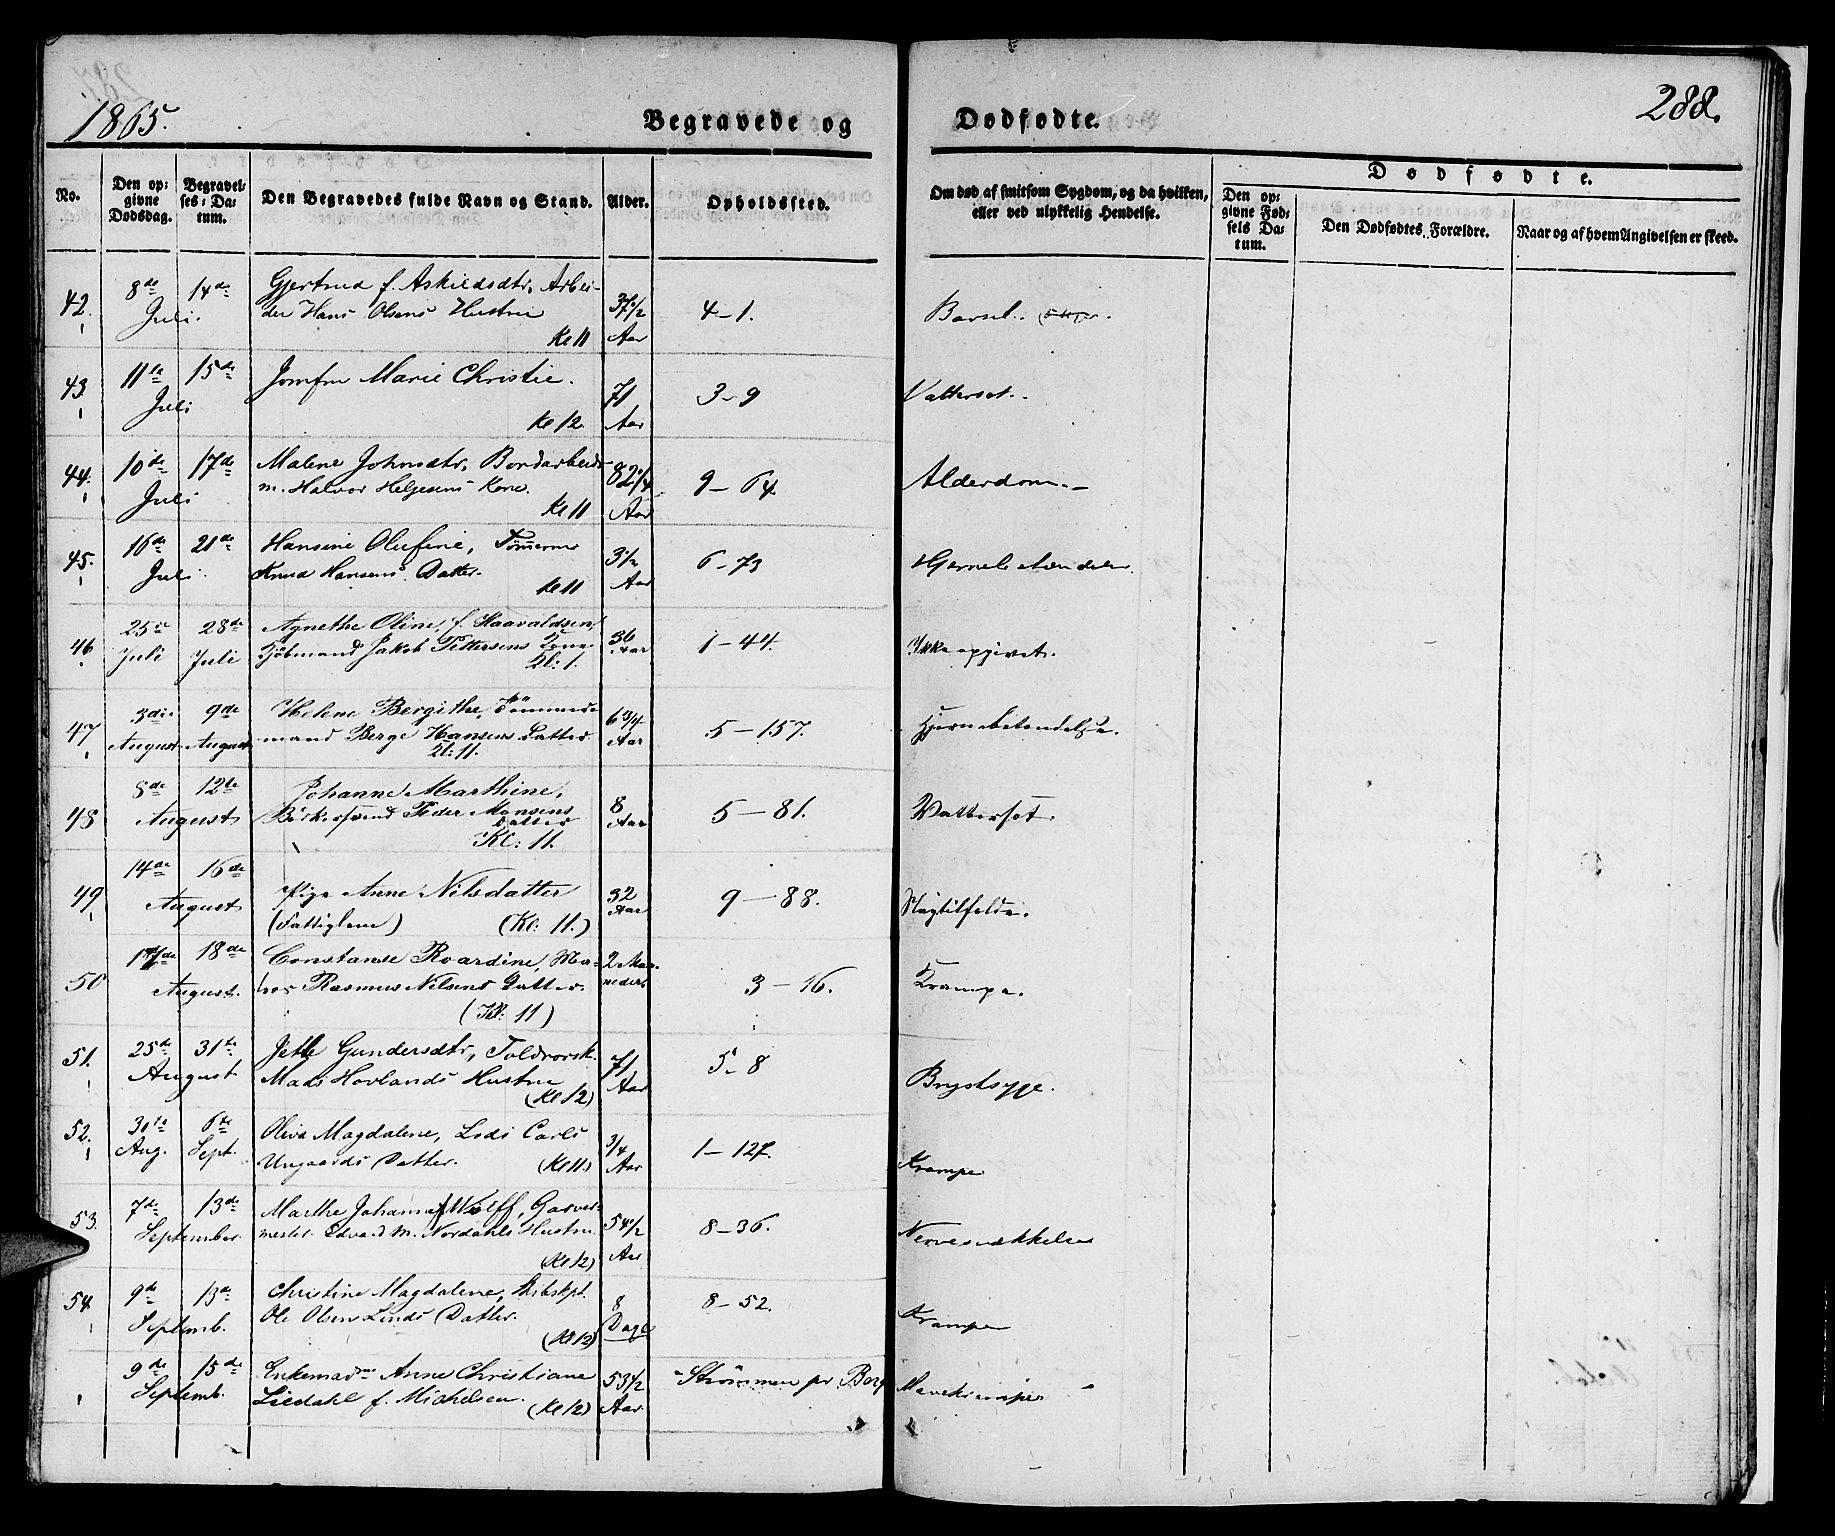 1865.
Begravede og
Dødfødte.
288.
No.
Den op-
givne
Dødsdag.
Begravel-
ses-Da-
tum.
Den Begravedes fulde Navn og Stand.
Alder.
Opholdssted.
Om død af smitsom Sygdom, og da hvilken,
eller ved ulykkelig Hendelse.
Dødfødte.
Den op-
givne Fød-
sels Da-
tum.
Den Dødfødtes Forældre.
Naar og af hvem Angivelsen er skeed.
42.
8de 14de
Juli.
Gjertrud f. Askildsdtr, Arbei-
der Hans Olsens Hustru
Kl 11
37 1/2
Aar
4-1.
Barsel.
43.
11te 15de
Juli
Jomfru Marie Christie.
Kl 12.
71
Aar
3-9
Vattersot.
44.
10de 17de
Juli
Malene Johnsdtr, Bordarbeids-
m. Halvor Helgesens Kone.
Kl 11
82 1/4
Aar
9-64.
Alderdom.
45.
16de 21de
Juli.
Hansine Olufine, Tømmerm
Knud Hansens Datter.
Kl 11
3 1/2
Aar
6-73
46
25de 28de
Juli Juli
Agnethe Oline, f. Haavaldsen,
Kjøbmand Jakob Pettersens Kone
Kl: 1.
36
Aar
1-44.
Ikke opgivet.
47
3die 9de
August August
Helene Bergithe, Tømmer-
mand Berge Hansens Datter
Kl: 11.
6 3/4
Aar
5-157.
Hjernebetendelse.
48
8de 12te
August
Johanne Marthine,
Peder Monsens
Datter
Kl: 11.
8
Aar
5-81.
Vattersot.
49
14de 16de
August
Pige Anne Nilsdatter
(Fattiglem) (Kl: 11.)
32
Aar
9-88.
Slagtilfelde.
50
17de 18de
August.
Constanse Roardine, Ma-
tros Rasmus Nilsens Datter.
(Kl: 11)
2 Maa-
neder
3-16.
Krampe.
51.
25de 31te
August
Jette Gundersdtr, Toldrorsk.
Mads Hovlands Hustru
(Kl 12)
71
Aar
5-8
Brystsyge.
52.
30te 6te
Aug. Sept.
Oliva Magdalene, Lods Carls
Ungaards Datter.
(Kl 11)
3/4
Aar
1-127.
Krampe
53.
7de 13de
September
Marthe Johanne f Wolff, Garver-
mester Edvard M. Nordahls Hustru
(Kl 12)
54 1/2
Aar
8-36.
Nervesvækkelse
54.
9de 13de
Septemb.
Christine Magdalene, Skibskpt.
Ole Olsen Linds Datter.
(Kl 12)
8
Dage
8-52.
Krampe
9de 15de
Septemb.
Enkemadme Anne Christiane
Liedahl f. Michelsen.
(Kl 12)
53 1/2
Aar
Strømmen pr. Berg
Mavekrampe